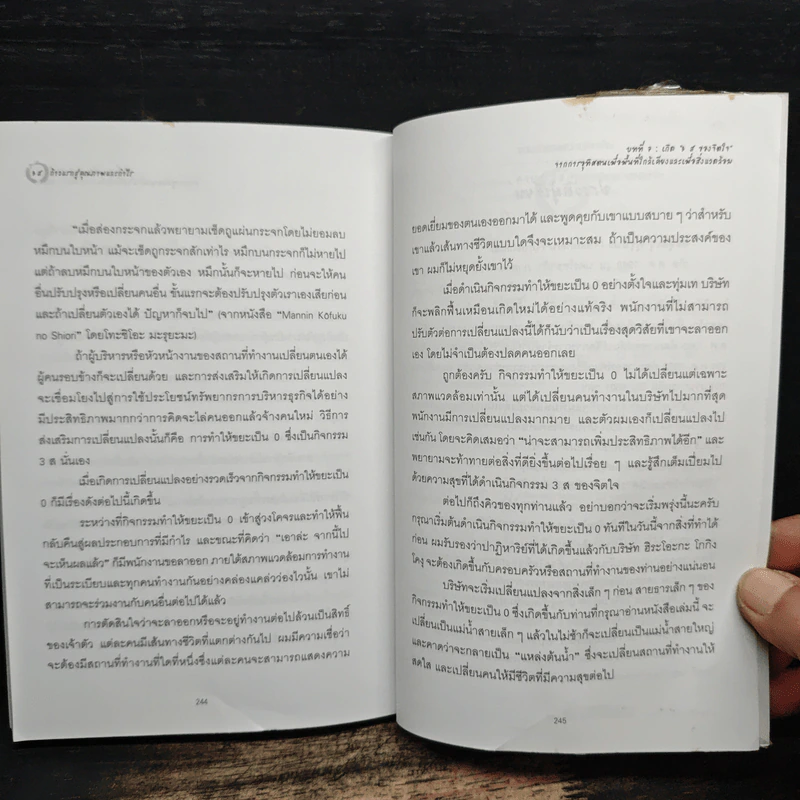 ๓ส ก้าวแรกสู่คุณภาพและกำไร
"เมื่อส่องกระจกแล้วพยายามเช็ดถูแผ่นกระจกโดยไม่ยอมลบ
หมึกบนใบหน้า แม้จะเช็ดถูกระจกสักเท่าไร หมึกบนกระจกก็ไม่หายไป
แต่ถ้าลบหมึกบนใบหน้าของตัวเอง หมึกนั้นก็จะหายไป ก่อนจะให้คน
อื่นปรับปรุงหรือเปลี่ยนคนอื่น ขั้นแรกจะต้องปรับปรุงตัวเราเองเสียก่อน
และถ้าเปลี่ยนตัวเองได้ ปัญหาก็จบไป" (จากหนังสือ "Mannin Kōfuku
no Shiori" โดยโทะชิโอะ มะรุยะมะ)
ถ้าผู้บริหารหรือหัวหน้างานของสถานที่ทำงานเปลี่ยนตนเองได้
ผู้คนรอบข้างก็จะเปลี่ยนด้วย และการส่งเสริมให้เกิดการเปลี่ยนแปลง
จะเชื่อมโยงไปสู่การใช้ประโยชน์ทรัพยากรการบริหารธุรกิจได้อย่าง
มีประสิทธิภาพมากกว่าการคิดจะไล่คนออกแล้วจ้างคนใหม่ วิธีการ
ส่งเสริมการเปลี่ยนแปลงนั้นก็คือ การทำให้ขยะเป็น 0 ซึ่งเป็นกิจกรรม
3 ส นั่นเอง
เมื่อเกิดการเปลี่ยนแปลงอย่างรวดเร็วจากกิจกรรมทำให้ขยะเป็น
0 ก็มีเรื่องดังต่อไปนี้เกิดขึ้น
ระหว่างที่กิจกรรมทำให้ขยะเป็น 0 เข้าสู่วงโคจรและทำให้ฟื้น
กลับคืนสู่ผลประกอบการที่มีกำไร และขณะที่คิดว่า "เอาล่ะ จากนี้ไป
จะเห็นผลแล้ว" ก็มีพนักงานขอลาออก ภายใต้สภาพแวดล้อมการทำงาน
ที่เป็นระเบียบและทุกคนทำงานกันอย่างคล่องแคล่วว่องไวนั้น เขาไม่
สามารถจะร่วมงานกับคนอื่นต่อไปได้แล้ว
การตัดสินใจว่าจะลาออกหรือจะอยู่ทำงานต่อไปล้วนเป็นสิทธิ์
ของเจ้าตัว แต่ละคนมีเส้นทางชีวิตที่แตกต่างกันไป ผมมีความเชื่อว่า
จะต้องมีสถานที่ทำงานที่ใดที่หนึ่งซึ่งแต่ละคนจะสามารถแสดงความ
244
บทที่ ๖ : เกิด "๓ ส ของจิตใจ"
จากการอุทิศตนเพื่อพื้นที่ใกล้เคียงและเพื่อสิ่งแวดล้อม
ยอดเยี่ยมของตนเองออกมาได้ และพูดคุยกับเขาแบบสบาย ๆ ว่าสำหรับ
เขาแล้วเส้นทางชีวิตแบบใดจึงจะเหมาะสม ถ้าเป็นความประสงค์ของ
เขา ผมก็ไม่หยุดยั้งเขาไว้
เมื่อดำเนินกิจกรรมทำให้ขยะเป็น 0 อย่างตั้งใจและทุ่มเท บริษัท
ก็จะพลิกฟื้นเหมือนเกิดใหม่ได้อย่างแท้จริง พนักงานที่ไม่สามารถ
ปรับตัวต่อการเปลี่ยนแปลงนี้ได้ก็นับว่าเป็นเรื่องสุดวิสัยที่เขาจะลาออก
เอง โดยไม่จำเป็นต้องปลดคนออกเลย
ถูกต้องครับ กิจกรรมทำให้ขยะเป็น 0 ไม่ได้เปลี่ยนแต่เฉพาะ
สภาพแวดล้อมเท่านั้น แต่ได้เปลี่ยนคนทำงานในบริษัทไปมากที่สุด
พนักงานมีการเปลี่ยนแปลงมากมาย และตัวผมเองก็เปลี่ยนแปลงไป
เช่นกัน โดยจะคิดเสมอว่า "น่าจะสามารถเพิ่มประสิทธิภาพได้อีก" และ
พยายามจะท้าทายต่อสิ่งที่ดียิ่งขึ้นต่อไปเรื่อย ๆ และรู้สึกเต็มเปี่ยมไป
ด้วยความสุขที่ได้ดำเนินกิจกรรม 3 ส ของจิตใจ
ต่อไปก็ถึงคิวของทุกท่านแล้ว อย่าบอกว่าจะเริ่มพรุ่งนี้นะครับ
กรุณาเริ่มต้นดำเนินกิจกรรมทำให้ขยะเป็น 0 ทันทีในวันนี้จากสิ่งที่ทำได้
ก่อน ผมรับรองว่าปาฏิหาริย์ที่ได้เกิดขึ้นแล้วกับบริษัท ฮิระโอะกะ โกกิง
โคงุ จะต้องเกิดขึ้นกับครอบครัวหรือสถานที่ทำงานของท่านอย่างแน่นอน
บริษัทจะเริ่มเปลี่ยนแปลงจากสิ่งเล็ก ๆ ก่อน สายธารเล็ก ๆ ของ
กิจกรรมทำให้ขยะเป็น 0 ซึ่งเกิดขึ้นกับท่านที่กรุณาอ่านหนังสือเล่มนี้ จะ
เปลี่ยนเป็นแม่น้ำสายเล็ก ๆ แล้วในไม่ช้าก็จะเปลี่ยนเป็นแม่น้ำสายใหญ่
และคาดว่าจะกลายเป็น "แหล่งต้นน้ำ" ซึ่งจะเปลี่ยนสถานที่ทำงานให้
สดใส และเปลี่ยนคนให้มีชีวิตที่มีความสุขต่อไป
245